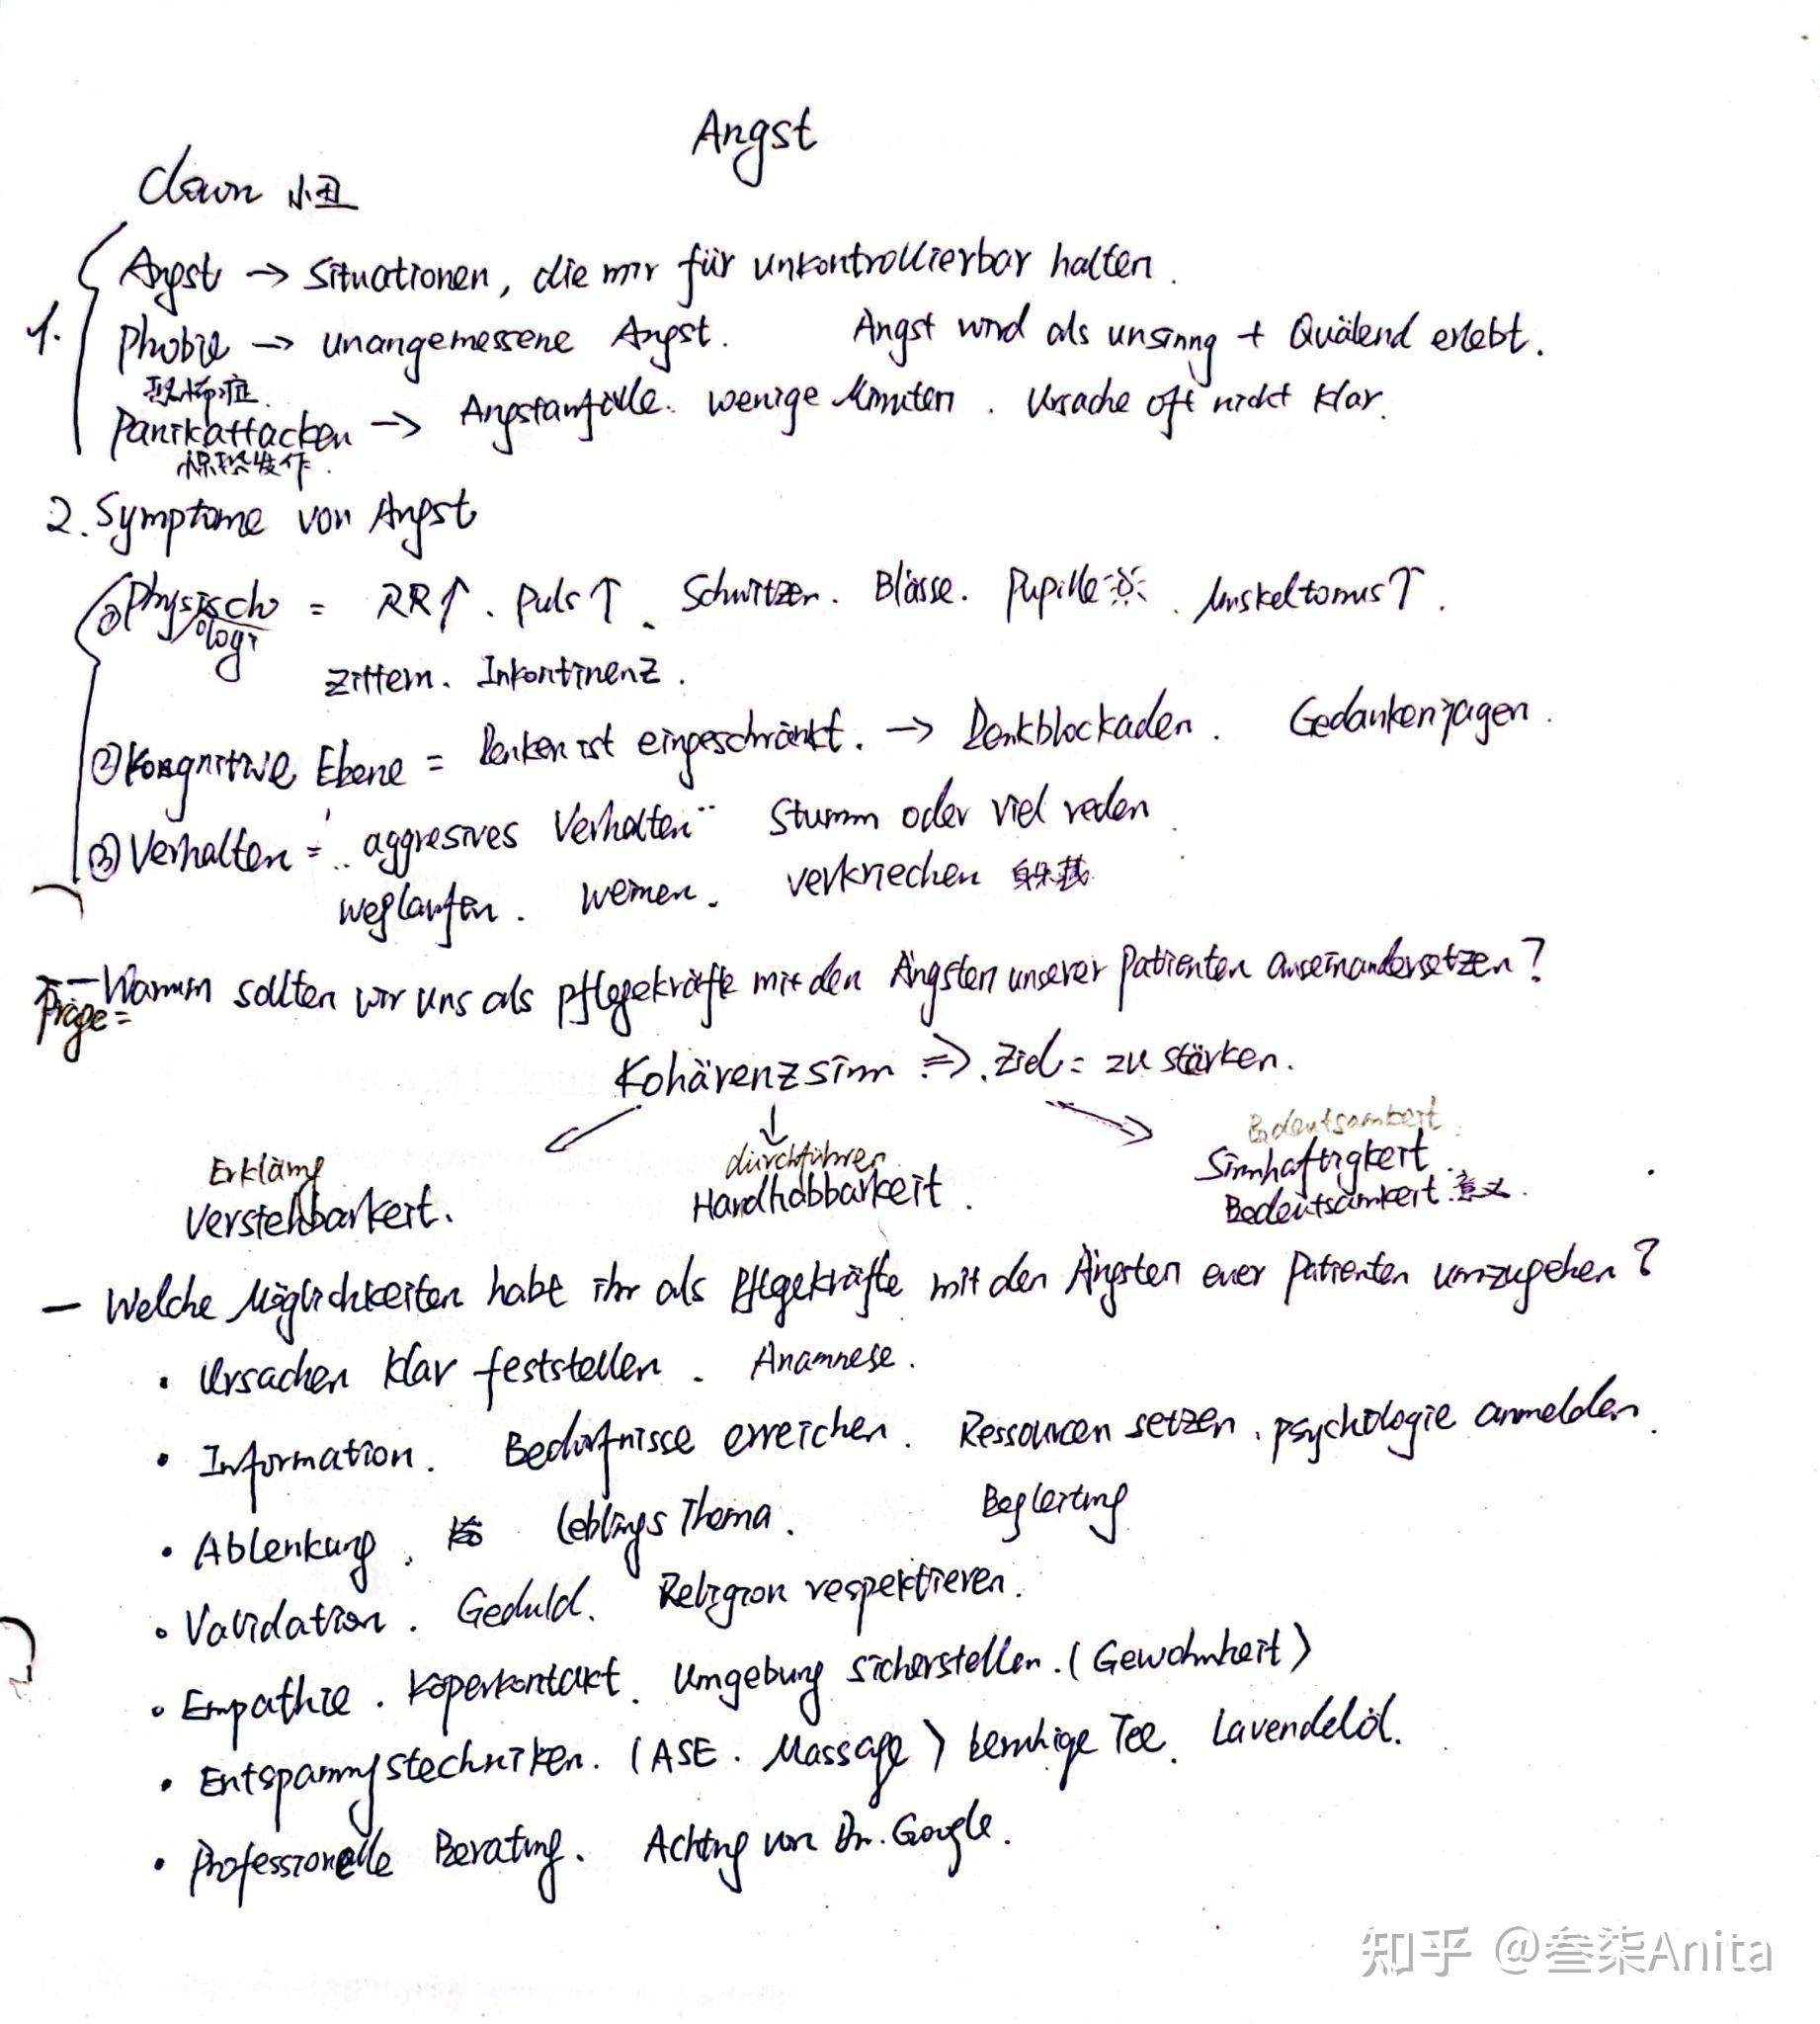 Angst
Clown 小丑
1. Angst → Situationen, die mir für unkontrollierbar halten.
Phobie → unangemessene Angst. Angst wird als unsinng + Quälend erlebt.
恐怖症
Panikattacken → Angstanfälle. wenige Minuten. Ursache oft nicht klar.
惊恐发作.
2. Symptome von Angst
① Physisch = RR↑. Puls↑. Schwitzen. Blässe. Pupille. Muskeltonus↑.
ologi
Zittern. Inkontinenz.
② Kognitive Ebene = Denken ist eingeschränkt. → Denkblockaden. Gedankenjagen.
③ Verhalten = "aggresives Verhalten" Stumm oder viel reden.
weglaufen. weinen. verkriechen 躲藏
Frage= —Warum sollten wir uns als pflegekräfte mit den Ängsten unserer Patienten auseinandersetzen?
Kohärenzsinn ⇒. Ziel = zu stärken.
Erklärung durchführen Bedeutsamkeit.
Verstehbarkeit. Handhabbarkeit. Sinnhaftigkeit.
Bedeutsamkeit. 意义.
— Welche Möglichkeiten habt ihr als Pflgekräfte mit den Ängsten euer Patienten umzugehen?
• Ursachen klar feststellen. Anamnese.
• Information. Bedürfnisse erreichen. Ressourcen setzen. psychologie anmelden.
• Ablenkung. Leblings Thema. Begleitung
• Validation. Geduld. Religion respektieren.
• Empathie. Köperkontakt. Umgebung sicherstellen. (Gewohnheit)
• Entspannungstechniken. (ASE. Massage) beruhige Tee. Lavendelöl.
• Professionelle Beratung. Achtung von Dr. Google.
知乎 @叁柒Anita